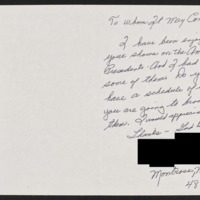 To Whom It May Con
I have been enjoy
your shows on the Am
Presidents. And I had
some of them. Do y
have a schedule of
you are going to br
them. I would apprec
Thanks - God
Montrose, M
48